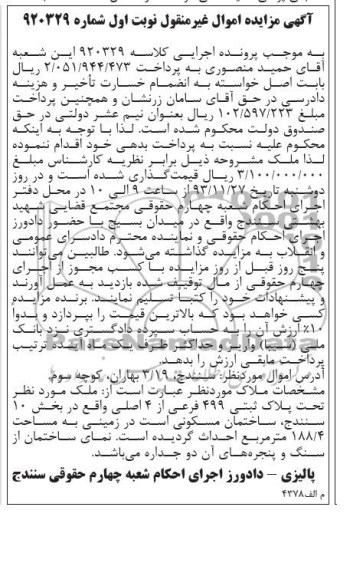 آگهی مزایده اموال غیرمنقول نوبت اول شماره ۹۲۰۳۲۹
به موجب پرونده اجرایی کلاسه ۹۲۰۳۲۹ این شعبه
آقای حمید منصوری به پرداخت ۲/۰۵۱/۹۴۴/۴۷۳ ریال
بابت اصل خواسته به انضمام خسارت تأخیر و هزینه
دادرسی در حق آقای سامان زرنشان و همچنین پرداخت
مبلغ ۱۰۲/۵۹۷/۲۲۳ ریال بعنوان نیم عشر دولتی در حق
صندوق دولت محکوم شده است. لذا با توجه به اینکه
محکوم علیه نسبت به پرداخت بدهی خود اقدام ننموده
لذا ملک مشروحه ذیل برابر نظریه کارشناس مبلغ
۳/۱۰۰/۰۰۰/۰۰۰ ریال قیمت‌گذاری شده است و در روز
دوشنبه تاریخ ۹۳/۱۱/۲۷ از ساعت ۹ الی ۱۰ در محل دفتر
اجرای احکام شعبه چهارم حقوقی مجتمع قضایی شهید
بهشتی سنندج واقع در میدان بسیج با حضور دادورز
اجرای احکام حقوقی و نماینده محترم دادسرای عمومی
و انقلاب به مزایده گذاشته می‌شود. طالبین می‌توانند
پنج روز قبل از روز مزایده با کسب مجوز از اجرای
چهارم حقوقی از مال توقیف شده بازدید به عمل آورند
و پیشنهادات خود را کتباً تسلیم نمایند. برنده مزایده
کسی خواهد بود که بالاترین قیمت را بپردازد و بدوا
۱۰٪ ارزش آن را به حساب سپرده دادگستری نزد بانک
ملی (سیبا) واریز و حداکثر ظرف یک ماه آینده ترتیب
پرداخت مابقی ارزش را بدهد.
آدرس اموال موردنظر: سنندج، ۳/۱۹ بهاران، کوچه سوم.
مشخصات ملاک موردنظر عبارت است از: ملک مورد نظر
تحت پلاک ثبتی ۴۹۹ فرعی از ۴ اصلی واقع در بخش ۱۰
سنندج، ساختمان مسکونی است در زمینی به مساحت
۱۸۸/۴ مترمربع احداث گردیده است. نمای ساختمان از
سنگ و پنجره‌های آن دو جداره می‌باشد.
پالیزی – دادورز اجرای احکام شعبه چهارم حقوقی سنندج
م الف۴۳۷۸